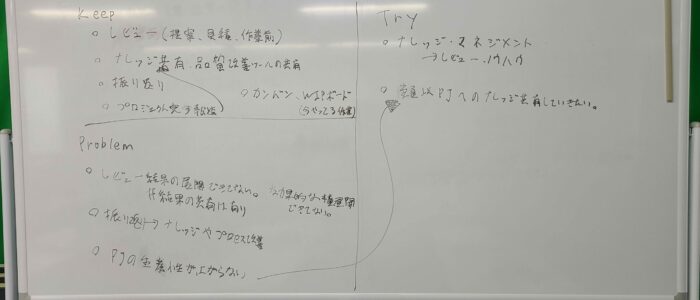 Keep
○ レビュー(提案、見積、作業前)
○ ナレッジ共有、品質改善ツールの共有
○ 振り返り
○ カンバン、WIPボード
(今やってる作業)
○ プロジェクト完了報告
Problem
○ レビュー結果の展開できてない。 効果的な横展開
できてない。
結果の共有は有り
○ 振り返り→ナレッジやプロセス改善
○ PJの生産性が上がらない
Try
○ ナレッジ・マネジメント
→レビュー、ノウハウ
○ PJへのナレッジ共有していきたい。